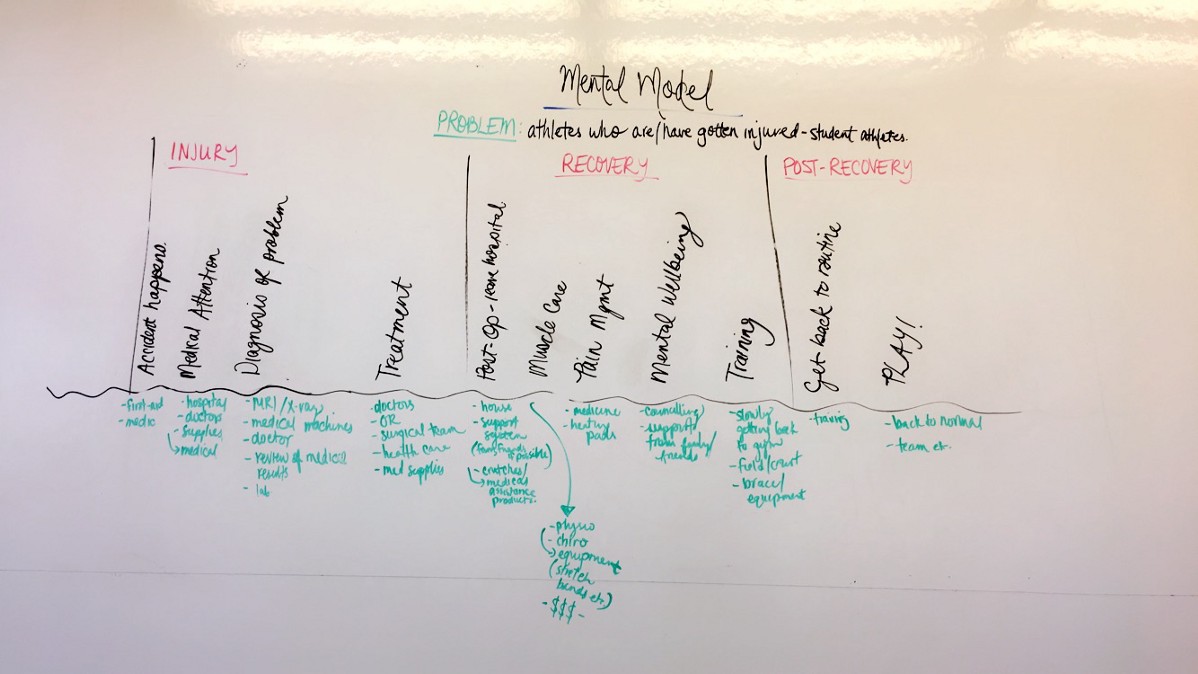 Mental Model
PROBLEM: athletes who are/have gotten injured - student athletes.
INJURY
RECOVERY
POST-RECOVERY
Accident happens.
Medical Attention
Diagnosis of problem
Treatment
Post-op - leave hospital
Muscle Care
Pain Mgmt
Mental Wellbeing
Training
Get back to routine
PLAY!
- first-aid
- medic
- hospital
- doctors
- supplies
medical
- MRI/X-ray
- medical machines
- doctor
- review of medical
results
- lab
- doctors
- OR
- surgical team
- health care
- med supplies
- house
- support
system
possible)
- crutches/
medical
assistance
products.
- physio
- chiro
equipment
(stretch
bands etc.)
- $$$ -
- medicine
- heating
pads
- councilling
- support
from family/
friends
- slowly
getting back
to gym
- field/court
- brace/
equipment
- training
- back to normal
- team etc.